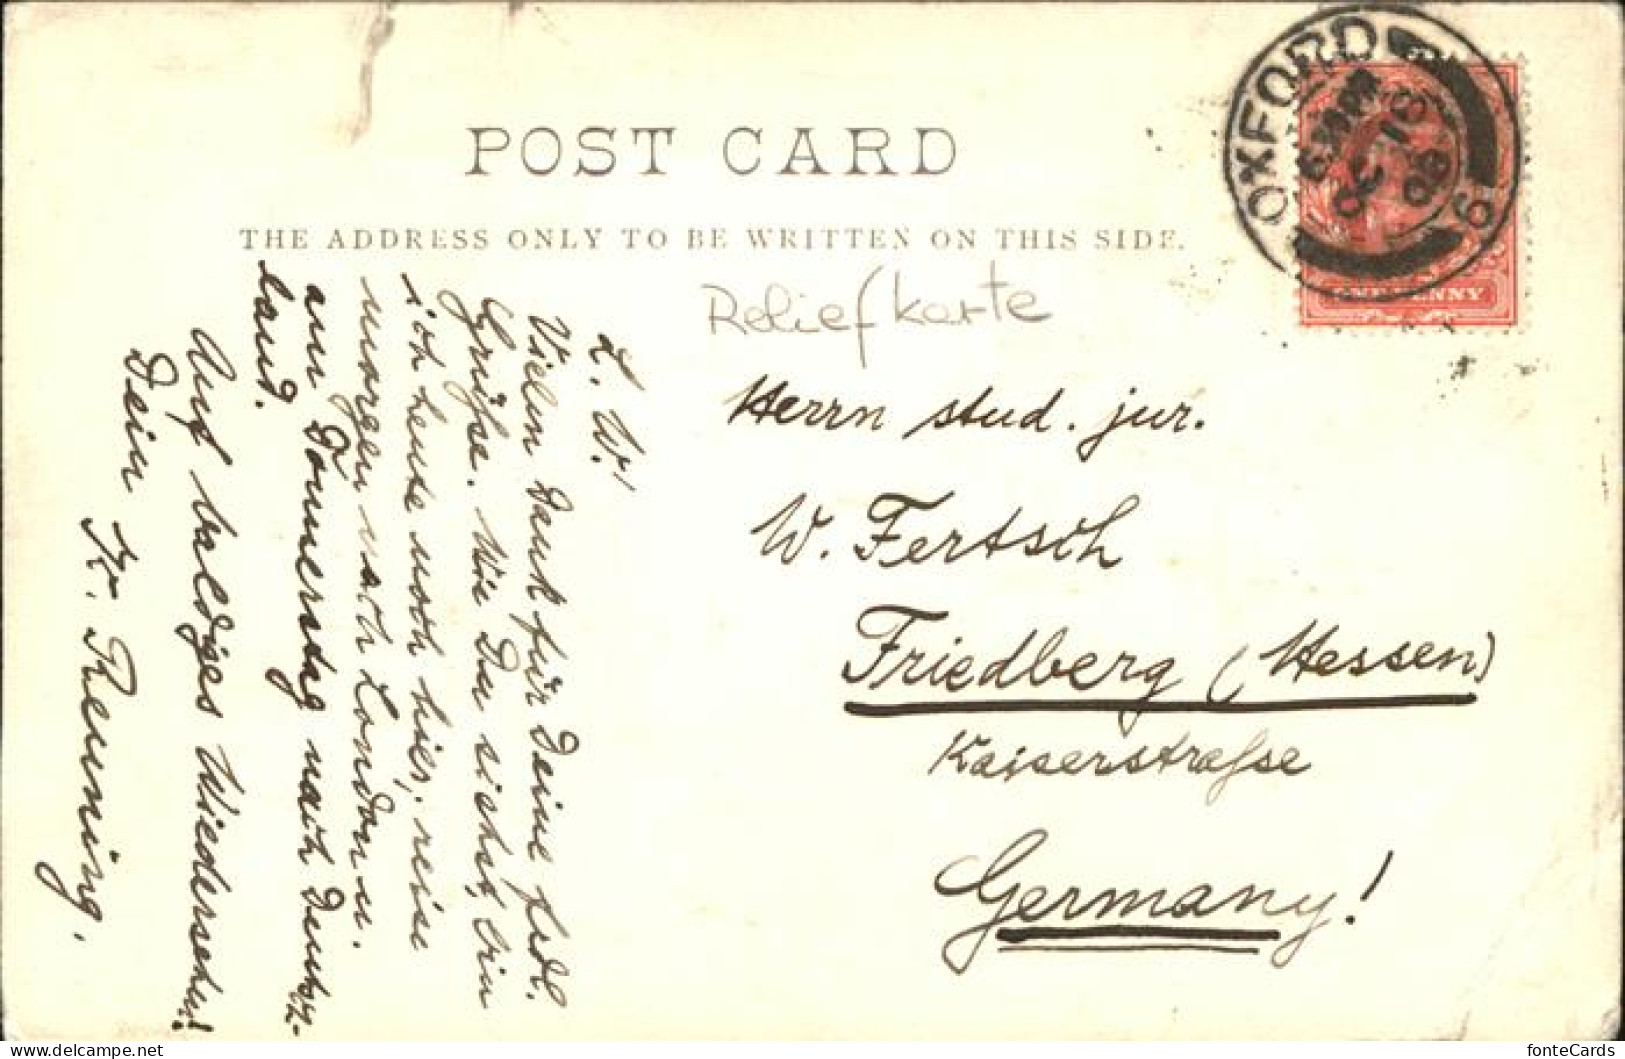 POST CARD
THE ADDRESS ONLY TO BE WRITTEN ON THIS SIDE.
OXFORD
OC 18
06
6
ONE PENNY
Reliefkarte
Herrn stud. jur.
W. Fertsch
Friedberg (Hessen)
Kaiserstraſse
Germany!
L. W.!
Vielen Dank für Deine frdl.
Grüſse. Wie Du siehst, bin
ich heute noch hier, reise
morgen nach London u.
am Donnerstag nach Deutsch-
land.
Auf baldiges Wiedersehen!
Dein
K. Reuning.
fonteCards